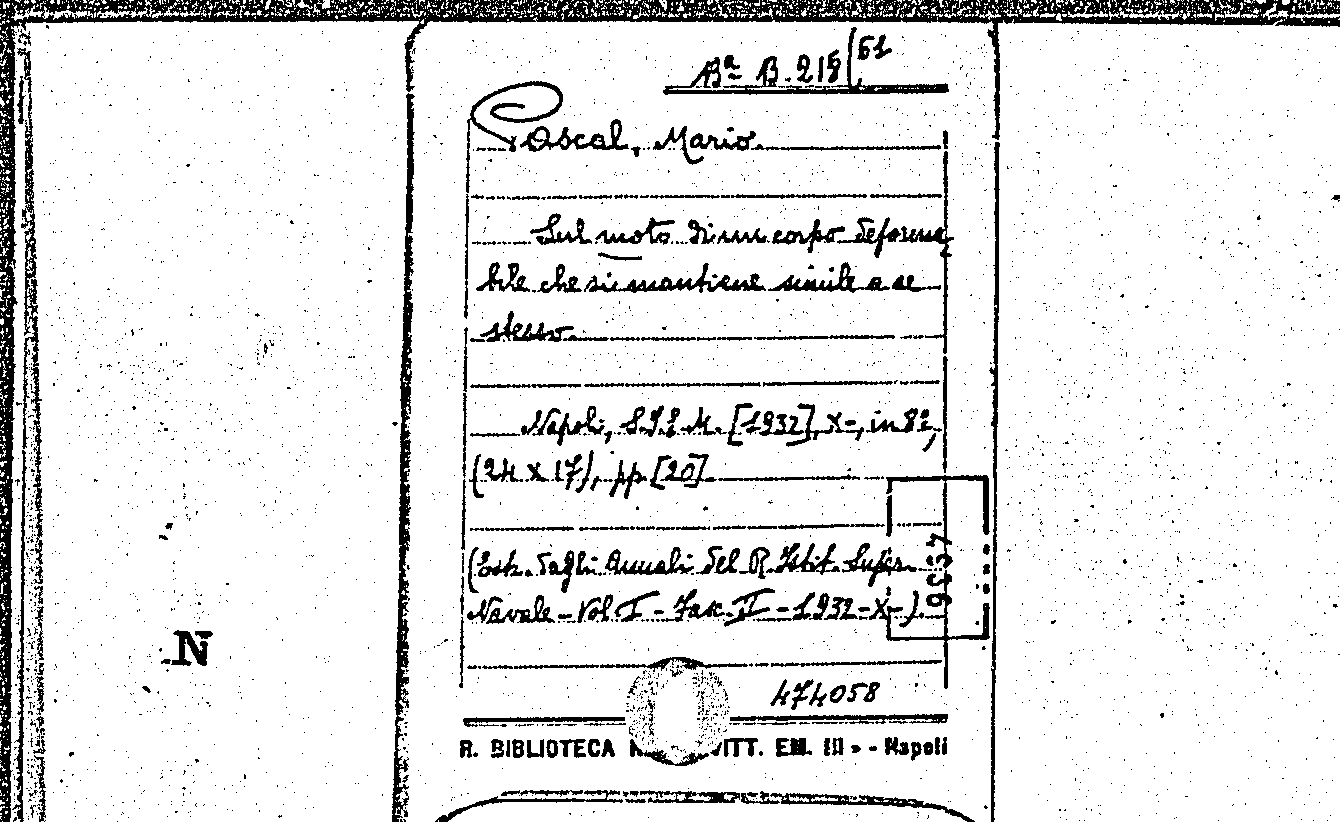 Bª B. 215(61
Pascal, Mario.
Sul moto di un corpo deforma
bile che si mantiene simile a se
stesso.
Napoli, S.I.E.M. [1932], X-, in 8º,
(24 x 17), pp. [20].
(Estr. dagli Annali del R. Istit. Super.
Navale - Vol. I - Fasc. II - 1932 - X -).
474058
R. BIBLIOTECA VITT. EM. III » - Napoli
N